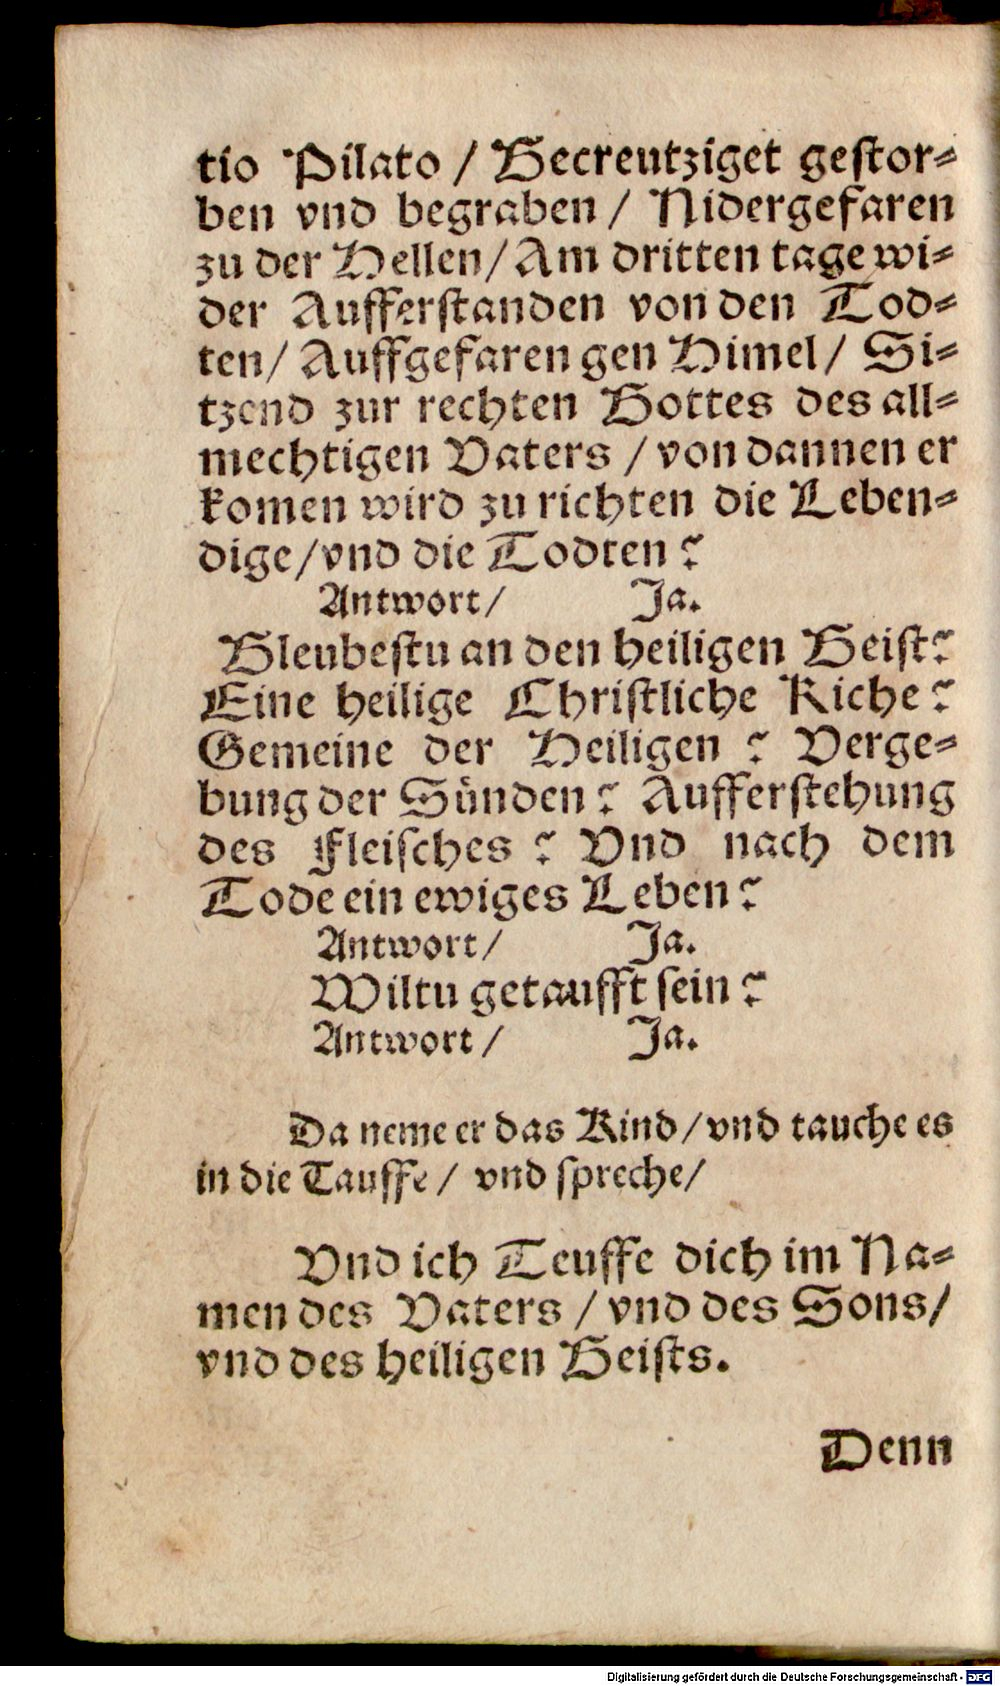 tio Pilato / Gecreutziget gestor⸗
ben vnd begraben / Nidergefaren
zu der Hellen / Am dritten tage wi⸗
der Aufferstanden von den Tod⸗
ten / Auffgefaren gen Himel / Si⸗
tzend zur rechten Gottes des all⸗
mechtigen Vaters / von dannen er
komen wird zu richten die Leben⸗
dige / vnd die Todten?
Antwort / Ja.
Gleubestu an den heiligen Geist?
Eine heilige Christliche Kiche?
Gemeine der Heiligen? Verge⸗
bung der Sünden? Aufferstehung
des Fleisches? Vnd nach dem
Tode ein ewiges Leben?
Antwort / Ja.
Wiltu getaufft sein?
Antwort / Ja.
Da neme er das Kind / vnd tauche es
in die Tauffe / vnd spreche /
Vnd ich Teuffe dich im Na⸗
men des Vaters / vnd des Sons /
vnd des heiligen Geists.
Denn
Digitalisierung gefördert durch die Deutsche Forschungsgemeinschaft - DFG